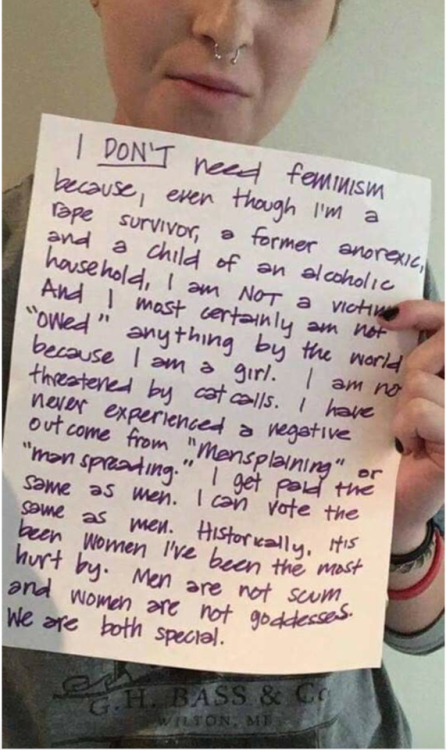 I DON'T need feminism
because, even though I'm a
rape survivor, a former anorexic,
and a child of an alcoholic
household, I am NOT a victim
And I most certainly am not
"owed" anything by the world
because I am a girl. I am no
threatened by cat calls. I have
never experienced a negative
outcome from "Mensplaining" or
"man spreading." I get paid the
same as men. I can vote the
same as men. Historically, its
been women I've been the most
hurt by. Men are not scum
and women are not goddesses.
We are both special.
G.H. BASS & Co
WILTON, ME